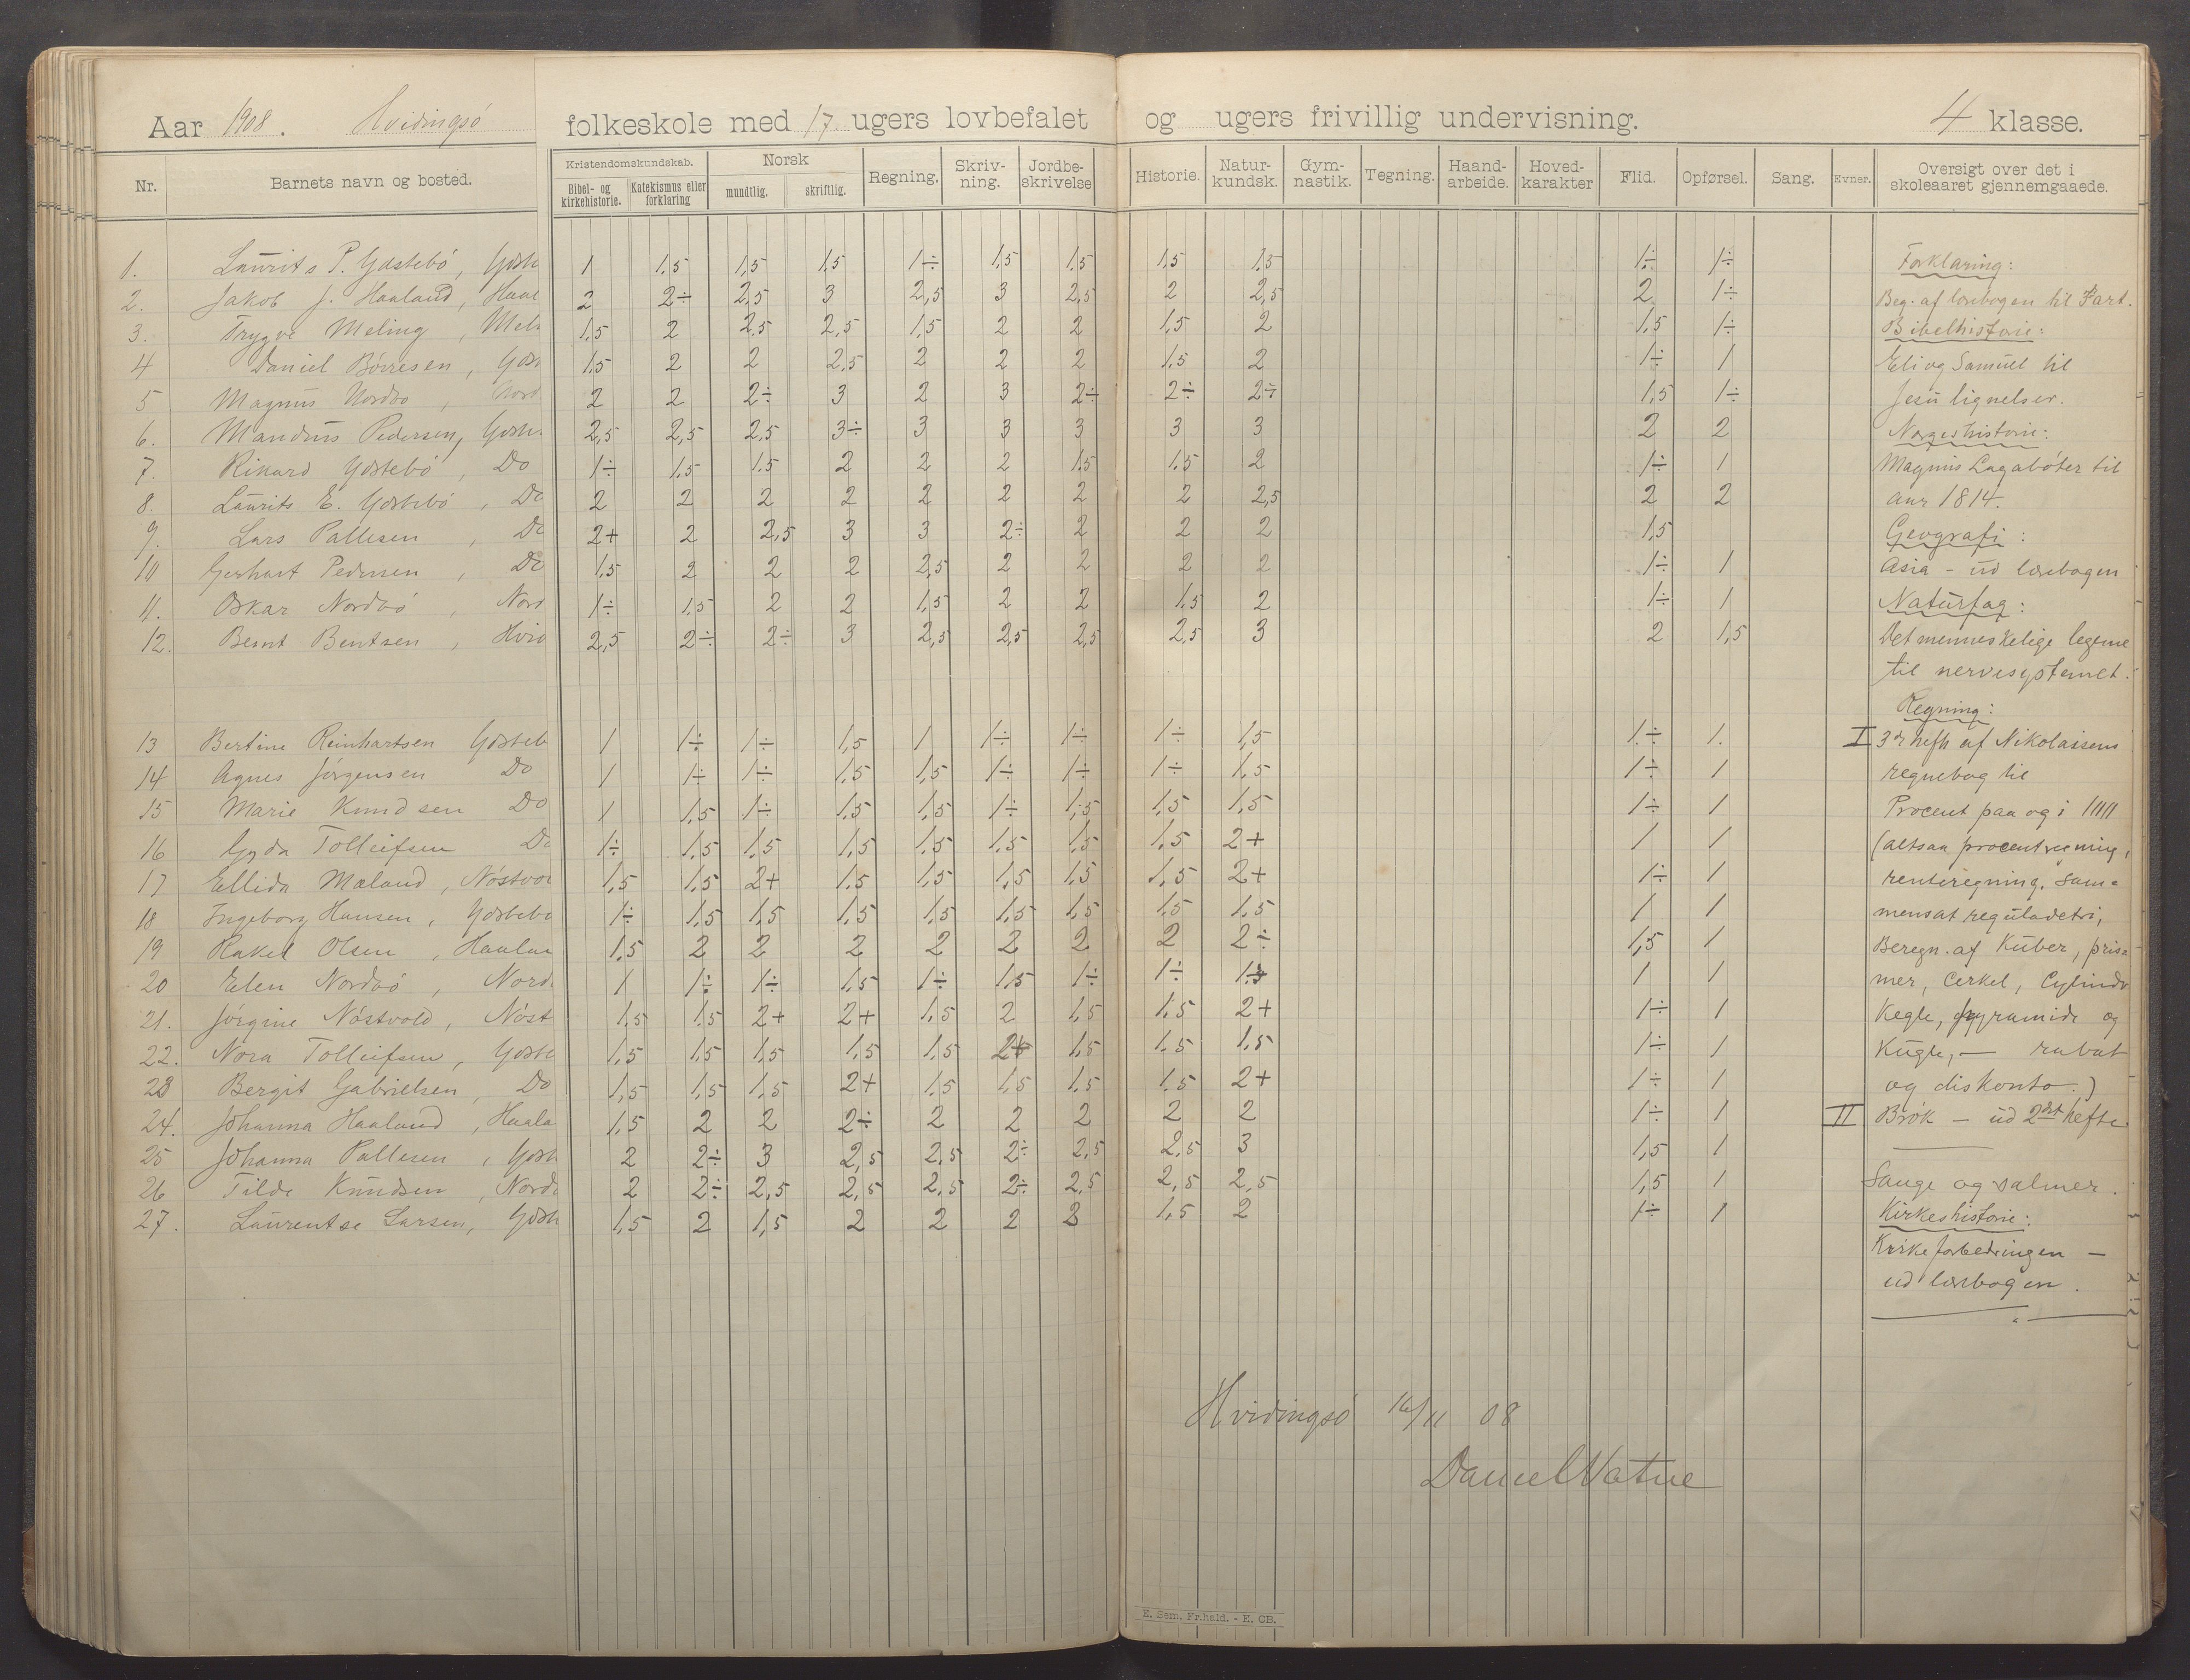 Aar 1908. Hvidingsö folkeskole med 17 ugers lovbefalet og ugers frivillig undervisning. 4 klasse.
Nr. Barnets navn og bosted. Kristendomskundskab. Bibel- og kirkehistorie. Katekismus eller forklaring Norsk mundtlig. skriftlig. Regning. Skriv-ning. Jordbe-skrivelse Historie. Natur-kundsk. Gym-nastik. Tegning. Haand-arbeide. Hoved-karakter Flid. Opførsel. Sang. Evner. Oversigt over det i skoleaaret gjennemgaaede.
1. Laurits P. Ydstebö, Ydste 1 1,5 1,5 1,5 1÷ 1,5 1,5 1,5 1,5 1÷ 1÷
2. Jakob J. Haaland, Haal 2 2÷ 2,5 3 2,5 3 2,5 2 2,5 2 1÷
3. Trygve Meling, Meli 1,5 2 2,5 2,5 1,5 2 2 1,5 2 1,5 1÷
4 Daniel Børresen, Ydst 1,5 2 2 2,5 2 2 2 1,5 2 1÷ 1
5 Magnus Nordbø, Nord 2 2 2÷ 3 2 3 2÷ 2÷ 2÷ 1,5 1÷
6. Mandius Pedersen, Ydste 2,5 2,5 2,5 3÷ 3 3 3 3 3 2 2
7. Rikard Ydstebö, Do 1÷ 1,5 1,5 2 2 2 1,5 1,5 2 1÷ 1
8. Laurits E. Ydstebö, Do 2 2 2 2 2 2 2 2 2,5 2 2
9. Lars Pallesen, Do 2+ 2 2,5 3 3 2÷ 2 2 2 1,5
10 Gerhart Pedersen, Do 1,5 2 2 2 2,5 2 2 2 2 1÷ 1
11. Oskar Nordbö, Nord 1÷ 1,5 2 2 1,5 2 2 1,5 2 1÷ 1
12. Bernt Bentsen, Hvid 2,5 2÷ 2÷ 3 2,5 2,5 2,5 2,5 3 2 1,5
13 Bertine Reinhartsen Ydsteb 1 1÷ 1÷ 1,5 1 1÷ 1÷ 1÷ 1,5 1÷ 1.
14 Agnes Jörgensen Do 1 1÷ 1÷ 1,5 1,5 1÷ 1÷ 1÷ 1,5 1÷ 1
15 Marie Knudsen Do 1 1,5 1÷ 1,5 1,5 1÷ 1,5 1,5 1,5 1÷ 1
16 Gyda Tolleifsen Do 1÷ 1,5 1,5 1,5 1,5 1,5 1,5 1,5 2+ 1 1
17 Ellida Mæland, Nöstvol 1,5 1,5 2+ 1,5 1,5 1,5 1,5 1,5 2+ 1÷ 1
18 Ingeborg Hansen, Ydstebö 1÷ 1,5 1,5 1,5 1,5 1,5 1,5 1,5 1,5 1 1
19 Rakel Olsen, Haalan 1,5 2 2 2 2 2 2 2 2÷ 1,5 1
20 Elen Nordbö, Nord 1 1÷ 1÷ 1,5 1÷ 1,5 1÷ 1÷ 1,5 1 1
21. Jörgine Nöstvold, Nöst 1,5 1,5 2+ 2+ 1,5 2 1,5 1,5 2+ 1÷ 1
22. Nora Tolleifsen, Ydste 1,5 1,5 1,5 1,5 1,5 2+ 1,5 1,5 1,5 1÷ 1
23 Bergit Gabrielsen, Do 1,5 1,5 1,5 2+ 1,5 1,5 1,5 1,5 2+ 1÷ 1
24. Johanna Haaland, Haala 1,5 2 2 2÷ 2 2 2 2 2 1÷ 1
25 Johanna Pallesen, Ydst 2 2÷ 3 2,5 2,5 2÷ 2,5 2,5 3 1,5 1
26 Tilda Knudsen, Nordb 2 2÷ 2,5 2,5 2,5 2÷ 2,5 2,5 2,5 1,5 1
27. Laurentse Larsen, Ydst 1,5 2 1,5 2 2 2 2 1,5 2 1÷ 1
Forklaring:
Beg. af lærebogen til 3 art.
Bibelhistorie:
Eli og Samuel til
Jesu lignelser.
Norgeshistorie:
Magnus Lagabøter til
aar 1814.
Geografi:
Asia - ud lærebogen
Naturfag:
Det menneskelige legeme
til nervesystemet.
Regning:
I 3dje hefte af Nikolaisens
regnebog til
Procent paa og i
(altsaa procentregning,
renteregning, sam=
mensat reguladetri,
Beregn. af Kuber, pris=
mer, Cirkel, Cylinder
Kegle, pyramide og
Kugle, — rabat
og diskonto.)
II Brøk — ud 2det hefte
Sange og salmer.
Kirkeshistorie:
Kirkeforbedringen —
ud lærebogen.
Hvidingsö 16/11 08
Daniel Vatne
E. Sem, Fr.hald. - E. CB.